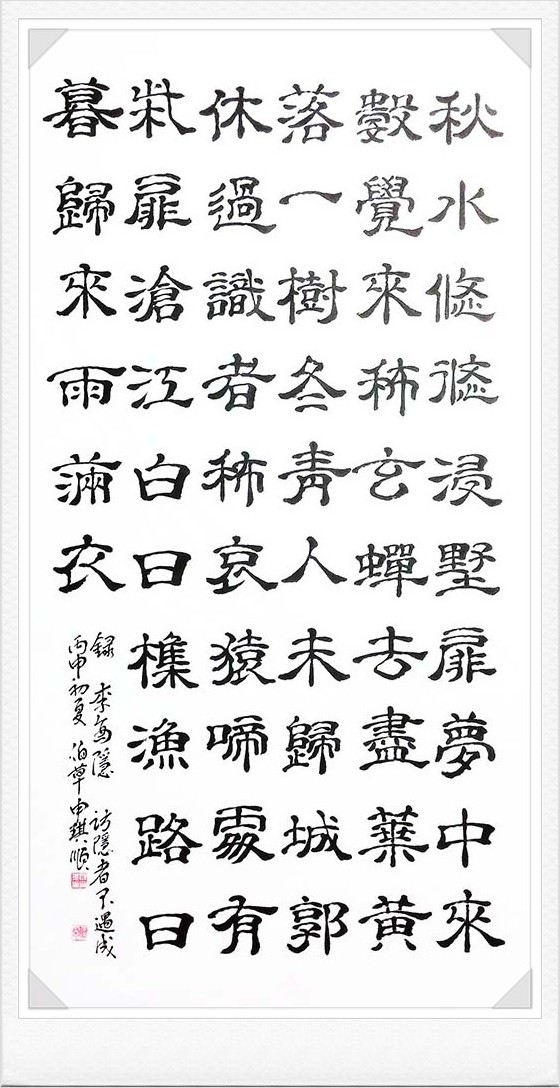 秋水悠悠浸墅扉夢中來
數覺來稀玄蟬去盡葉黃
落一樹冬青人未歸城郭
休過識者稀哀猿啼處有
柴扉滄江白日樵漁路日
暮歸來雨滿衣
錄 李商隱 訪隱者不遇成
丙申初夏 泊草 申琪順